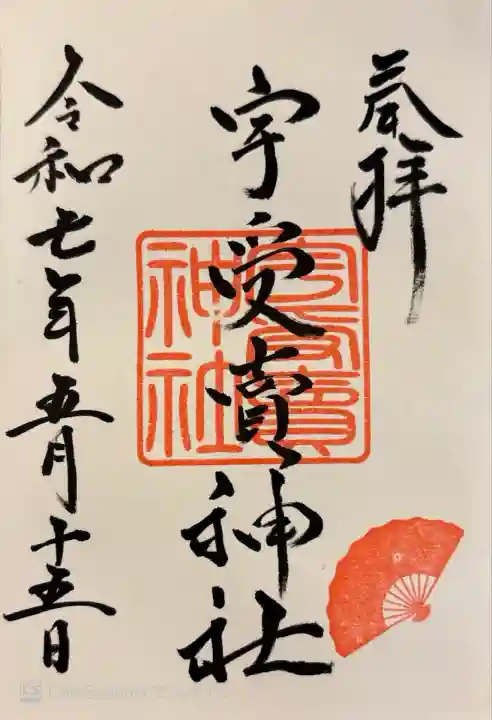 奉拝
宇受賣神社
宇受賣
神社
令和七年五月十五日